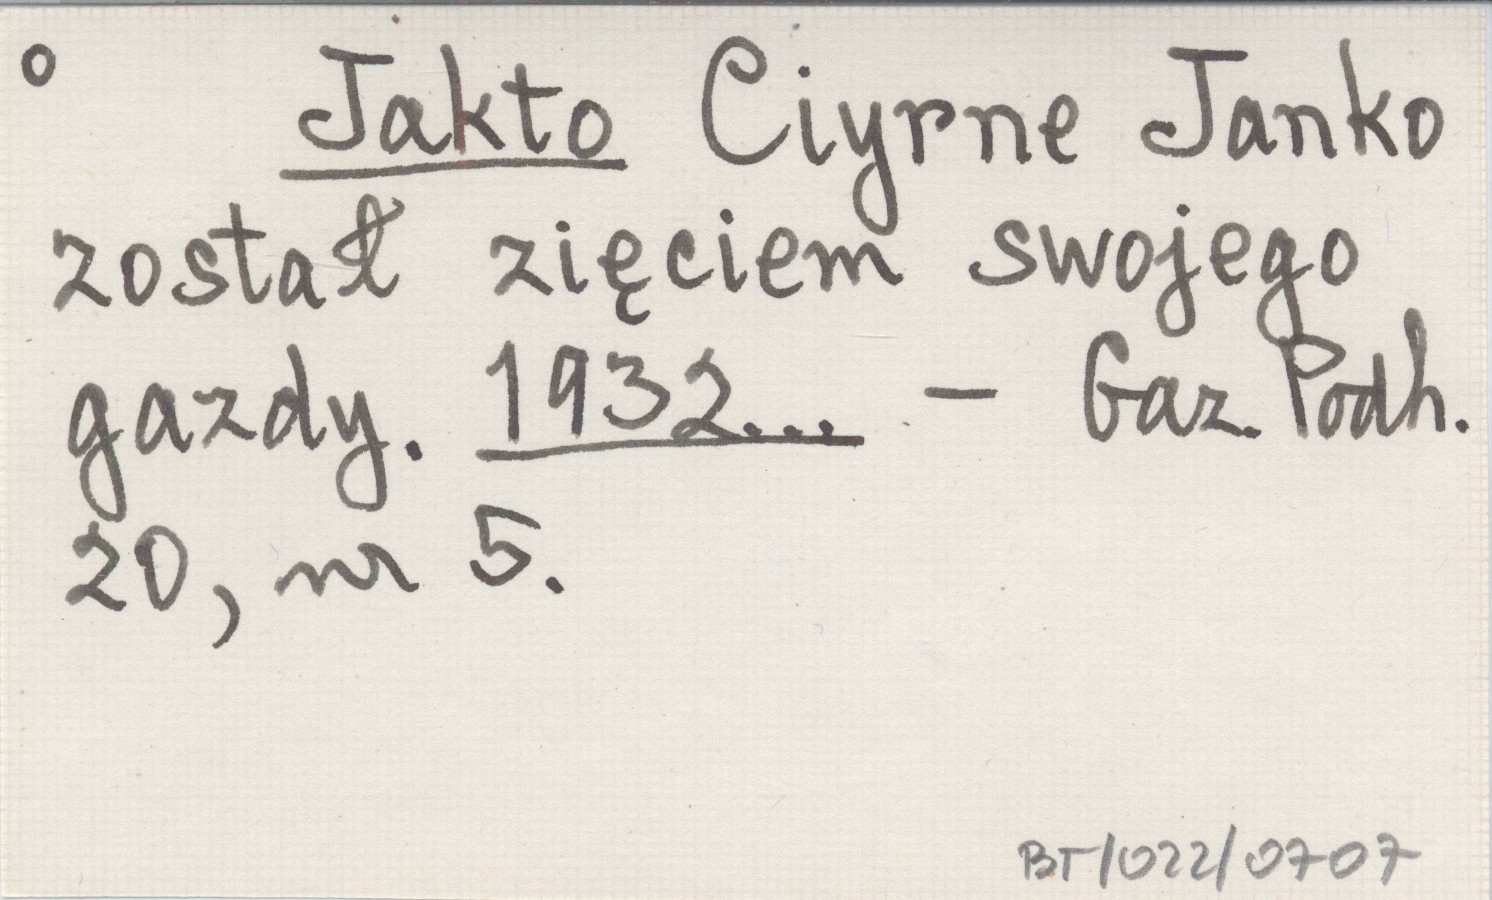 o Jakto Ciyrne Janko
został zięciem swojego
gazdy. 1932... - Gaz. Podh.
20, nr 5.
BT/022/0707